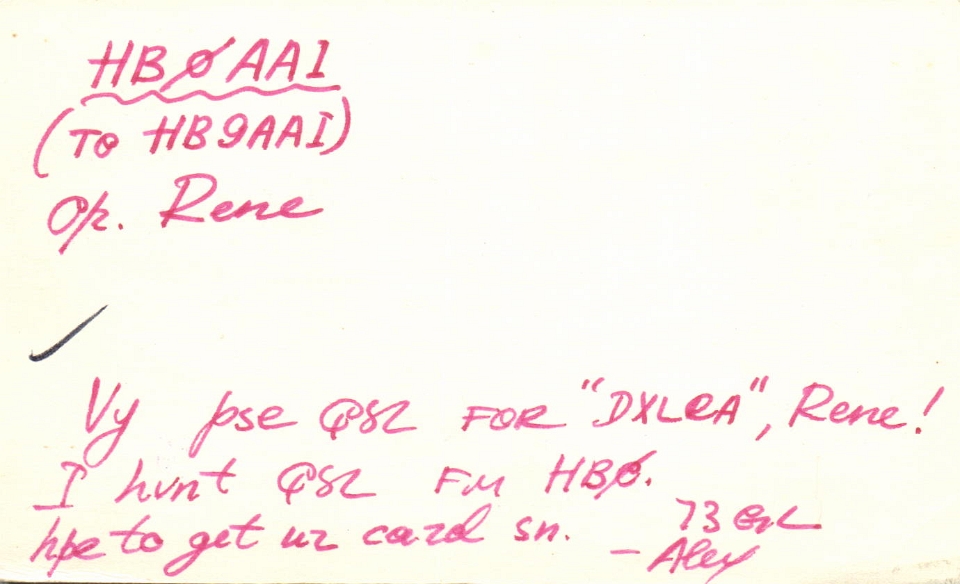 HBØAAI
(TO HB9AAI)
Op. Rene
Vy pse QSL FOR "DXLCA", Rene!
I hvnt QSL FM HBØ.
hpe to get ur card sn. 73 es
- Alex